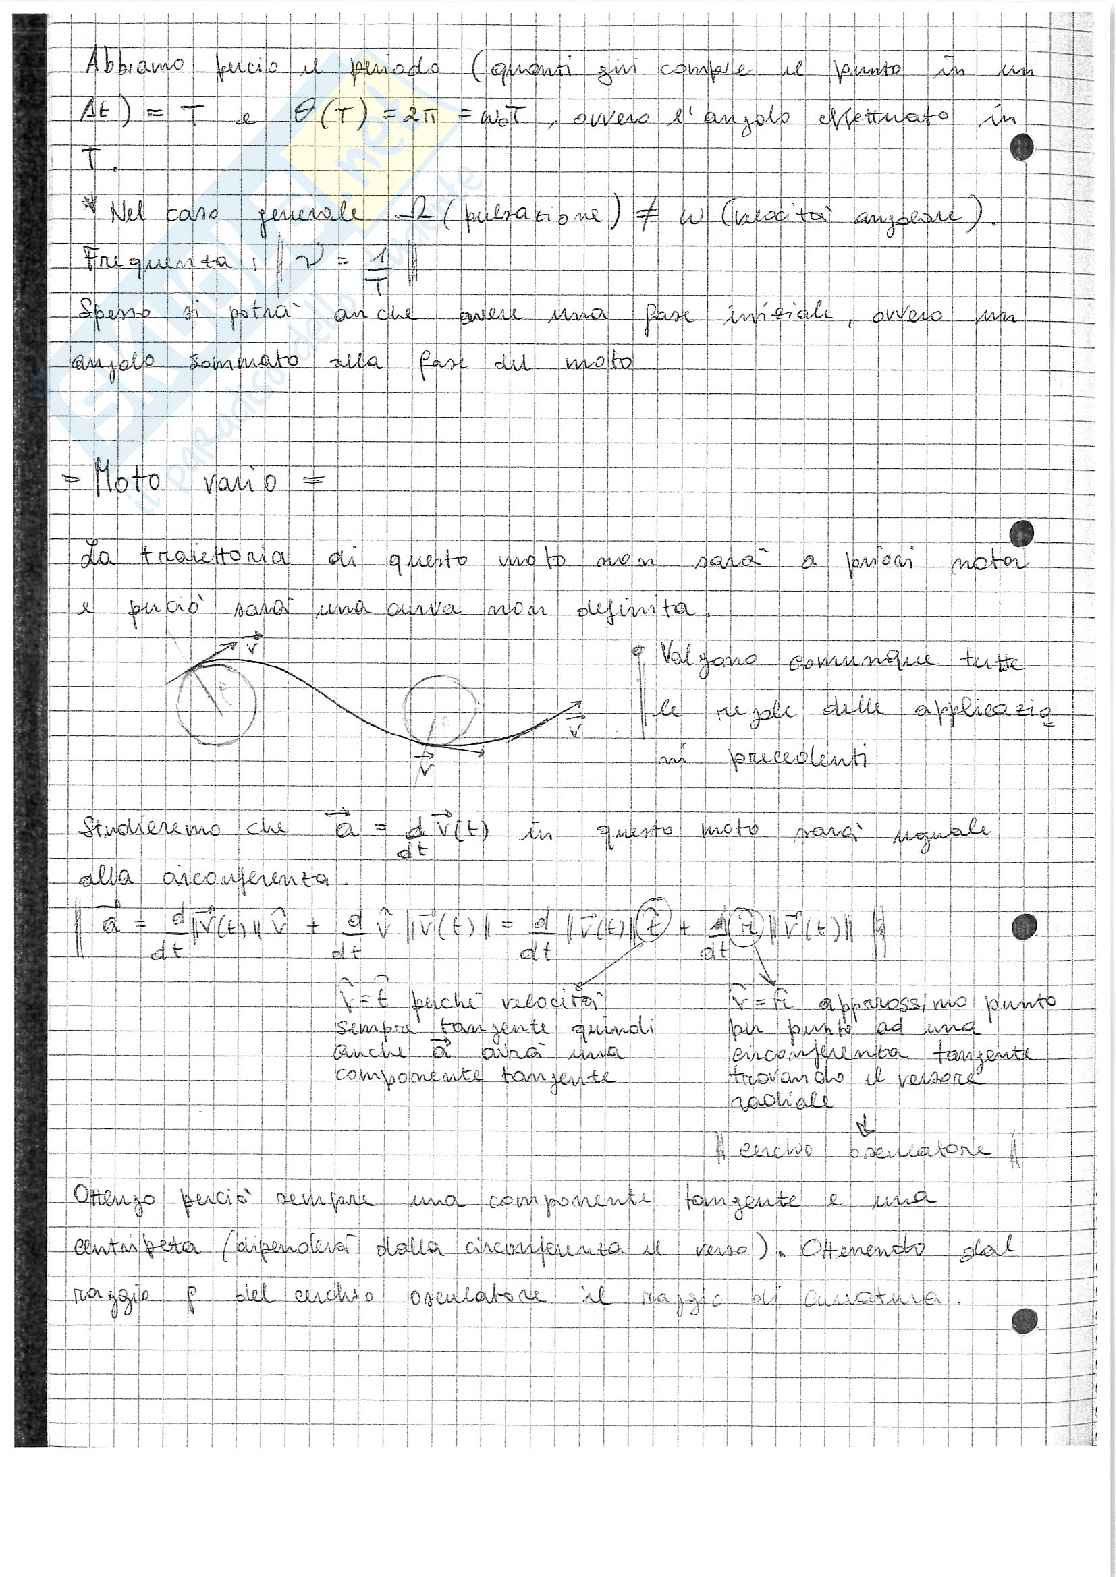 Abbiamo perciò il periodo (quanti giri compie il punto in un
Δt) = T e θ(T) = 2π = ω₀T, ovvero l'angolo effettuato in
T.
* Nel caso generale Ω (pulsazione) ≠ ω (velocità angolare).
Frequenza: ‖ ν = 1/T ‖
Spesso si potrà anche avere una fase iniziale, ovvero un
angolo sommato alla fase del moto
= Moto vario =
La traiettoria di questo moto non sarà a priori nota
e perciò sarà una curva non definita.
v⃗
Valgono comunque tutte
le regole delle applicazio
ni precedenti
v⃗
v⃗
Studieremo che a⃗ = d/dt v⃗(t) in questo moto sarà uguale
alla circonferenza.
‖ a⃗ = d/dt ‖v⃗(t)‖ v̂ + d/dt v̂ ‖v⃗(t)‖ = d/dt ‖v⃗(t)‖ t̂ + d/dt n̂ ‖v⃗(t)‖ ‖
v̂ = t̂ perché velocità
sempre tangente quindi
anche a⃗ avrà una
componente tangente
v̂ = n̂ approssimo punto
per punto ad una
circonferenza tangente
trovando il versore
radiale
‖ cerchio osculatore ‖
Ottengo perciò sempre una componente tangente e una
centripeta (dipenderà dalla circonferenza il verso). Ottenendo dal
raggio ρ del cerchio osculatore il raggio di curvatura.